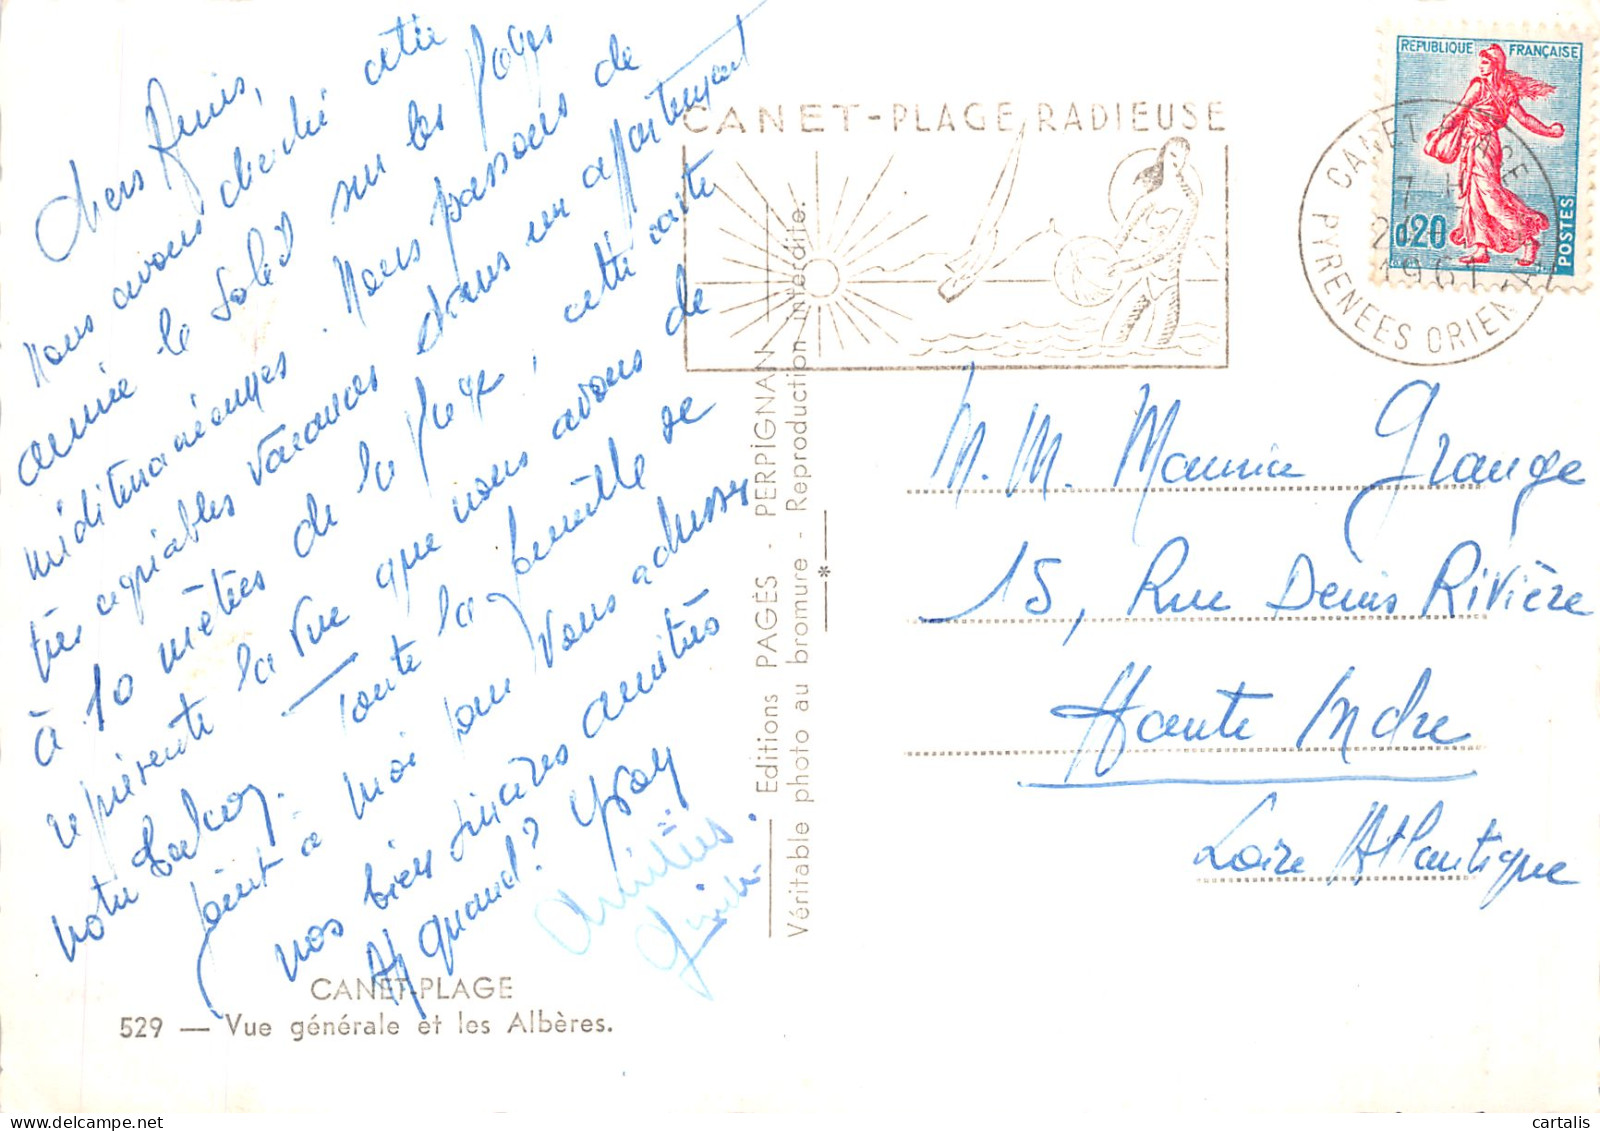 Chers Amis,
Nous avons cherché cette
année le soleil sur les plages
méditerranéennes. Nous passons de
très agréables vacances dans un appartement
à 10 mètres de la plage, cette carte
représente la vue que nous avons de
notre balcon. Toute la famille se
joint à moi pour vous adresser
nos bien sincères amitiés
A quand?
Amitiés
CANET-PLAGE
529 — Vue générale et les Albères.
Editions PAGÈS - PERPIGNAN
Véritable photo au bromure - Reproduction interdite.
CANET-PLAGE RADIEUSE
CANET PLAGE
7 H
1961
PYRENEES ORIENT
REPUBLIQUE FRANÇAISE
0,20
POSTES
M. M. Maurice Grange
15, Rue Denis Rivière
Haute Indre
Loire Atlantique
cartalis